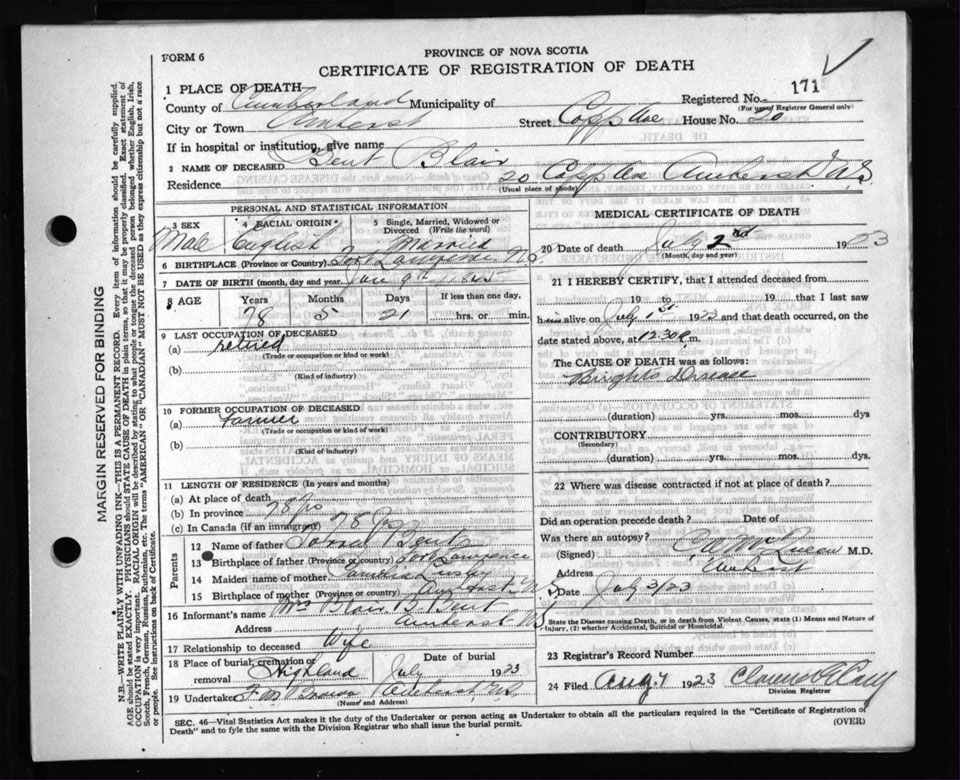 FORM 6
PROVINCE OF NOVA SCOTIA
CERTIFICATE OF REGISTRATION OF DEATH
1 PLACE OF DEATH
Registered No. 171
(For use of Registrar General only)
County of Cumberland Municipality of
City or Town Amherst Street Copp Ave House No. 20
If in hospital or institution, give name
2 NAME OF DECEASED Bent Blair
Residence 20 Copp Ave Amherst N.S
(Usual place of abode)
PERSONAL AND STATISTICAL INFORMATION
3 SEX 4 RACIAL ORIGIN 5 Single, Married, Widowed or Divorced (Write the word)
Male English Married
6 BIRTHPLACE (Province or Country) Fort Lawrence N.S.
7 DATE OF BIRTH (month, day and year) Jan 9th 1845
8 AGE Years Months Days If less than one day,
78 5 21 hrs. or min.
9 LAST OCCUPATION OF DECEASED
(a) retired
(Trade or occupation or kind of work)
(b)
(Kind of industry)
10 FORMER OCCUPATION OF DECEASED
(a) Farmer
(Trade or occupation or kind of work)
(b)
(Kind of industry)
11 LENGTH OF RESIDENCE (In years and months)
(a) At place of death
(b) In province 78 yrs
(c) In Canada (if an immigrant) 78 yrs
Parents
12 Name of father Bent
13 Birthplace of father (Province or country) Fort Lawrence
14 Maiden name of mother
15 Birthplace of mother (Province or country) Amherst N.S
16 Informant's name Mrs Blair B. Bent
Address Amherst N.S
17 Relationship to deceased Wife
18 Place of burial, cremation or removal Highland Date of burial July 1923
19 Undertaker Amherst, N.S.
(Name and Address)
MEDICAL CERTIFICATE OF DEATH
20 Date of death July 2nd 1923
(Month, day and year)
21 I HEREBY CERTIFY, that I attended deceased from
19 to 19 that I last saw
him alive on July 1st 1923 and that death occurred, on the
date stated above, at 12.30 m.
The CAUSE OF DEATH was as follows:
Brights Disease
(duration) yrs. mos. dys.
CONTRIBUTORY
(Secondary)
(duration) yrs. mos. dys.
22 Where was disease contracted if not at place of death?
Did an operation precede death? Date of
Was there an autopsy?
(Signed) C.A. McQueen M.D.
Address Amherst
Date July 3/23
State the Disease causing Death, or in death from Violent Causes, state (1) Means and Nature of Injury, (2) whether Accidental, Suicidal or Homicidal.
23 Registrar's Record Number
24 Filed Aug 7 1923
Division Registrar
SEC. 46—Vital Statistics Act makes it the duty of the Undertaker or person acting as Undertaker to obtain all the particulars required in the "Certificate of Registration of
Death" and to fyle the same with the Division Registrar who shall issue the burial permit. (OVER)
MARGIN RESERVED FOR BINDING
N.B.—WRITE PLAINLY WITH UNFADING INK—THIS IS A PERMANENT RECORD. Every item of information should be carefully supplied.
AGE should be stated EXACTLY. PHYSICIANS should STATE CAUSE OF DEATH in plain terms, so that it may be properly classified. Exact statement of
OCCUPATION is very important. RACIAL ORIGIN will be described by stating to what people or tongue the deceased person belonged whether English, Irish,
Scotch, French, German, Russian, Ruthenian, etc. The terms "AMERICAN" or "CANADIAN" MUST NOT BE USED as they express citizenship but not a race
or people. See instructions on back of Certificate.